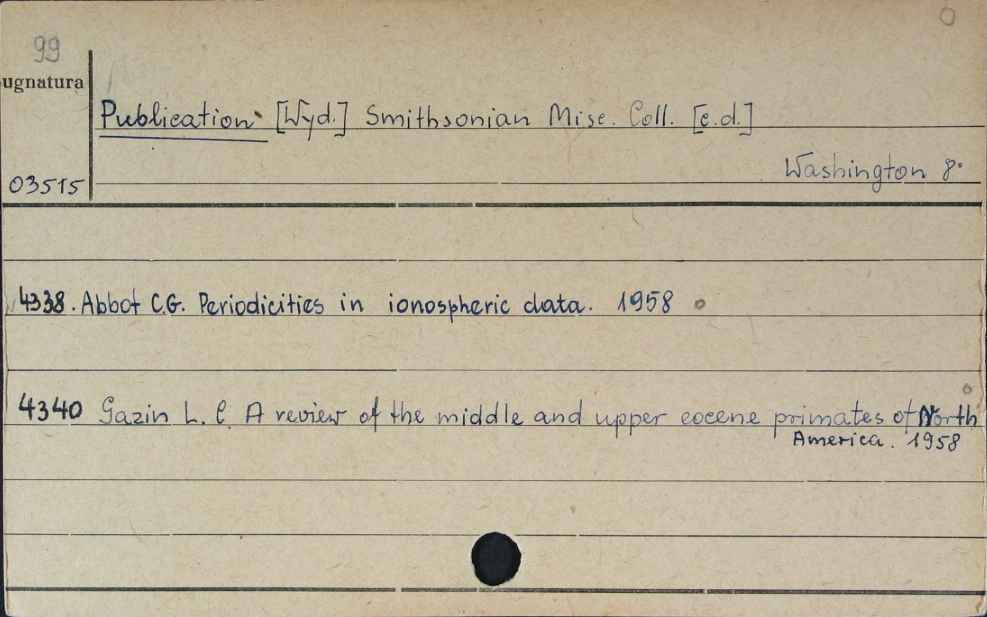 99
ugnatura
Publication [Wyd.] Smithsonian Misc. Coll. [c.d.]
Washington 8°
03515
4338. Abbot C.G. Periodicities in ionospheric data. 1958
4340 Gazin L. C. A review of the middle and upper eocene primates of North
America. 1958